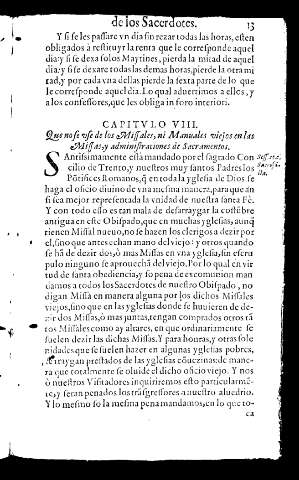 de los Sacerdotes. 13
Y si se les passare vn dia sin rezar todas las horas, esten
obligados à restituyr la renta que le corresponde aquel
dia: y si se dexa solos Maytines, pierda la mitad de aquel
dia: y si se dexare todas las demas horas, pierde la otra mi
tad, y por cada vna dellas pierde la sexta parte de lo que
le corresponde aquel dia. Lo qual aduertimos a ellos, y
a los confessores, que les obliga in foro interiori.
CAPITVLO VIII.
Que no se vse de los Missales, ni Manuales viejos en las
Missas, y administraciones de Sacramentos.
SAntissimamente està mandado por el sagrado Con
cilio de Trento, y nuestros muy santos Padres los
Pōtifices Romanos, q̃ en toda la yglesia de Dios se
haga el oficio diuino de vna mesma manera, para que an
si sea mejor representada la vnidad de nuestra santa Fè.
Y con todo esso es tan mala de desarraygar la costūbre
antigua en este Obispado, que en muchas yglesias, aunq̃
tienen Missal nueuo, no se hazen los clerigos a dezir por
el, sino que antes echan mano del viejo: y otros quando
se hā de dezir dos, ò mas Missas en vna yglesia, sin escru
pulo ninguno se aprouechā del viejo. Por lo qual en vir
tud de santa obediencia, y so pena de excomunion man
damos a todos los Sacerdotes de nuestro Obispado, no
digan Missa en manera alguna por los dichos Missales
viejos, sino que en las yglesias donde se huuieren de de-
zir dos Missas, ò mas juntas, tengan comprados otros tā
tos Missales como ay altares, en que ordinariamente se
suelen dezir las dichas Missas. Y para honras, y otras sole
nidades que se suelen hazer en algunas yglesias pobres,
se traygan prestados de las yglesias cōuezinas: de mane
ra que totalmente se oluide el dicho oficio viejo. Y nos
ò nuestros Visitadores inquiriremos esto particularmē-
te, y seran penados los trāsgressores a nuestro aluedrio.
Y lo mesmo so la mesma pena mandamos, en lo que to-
ca